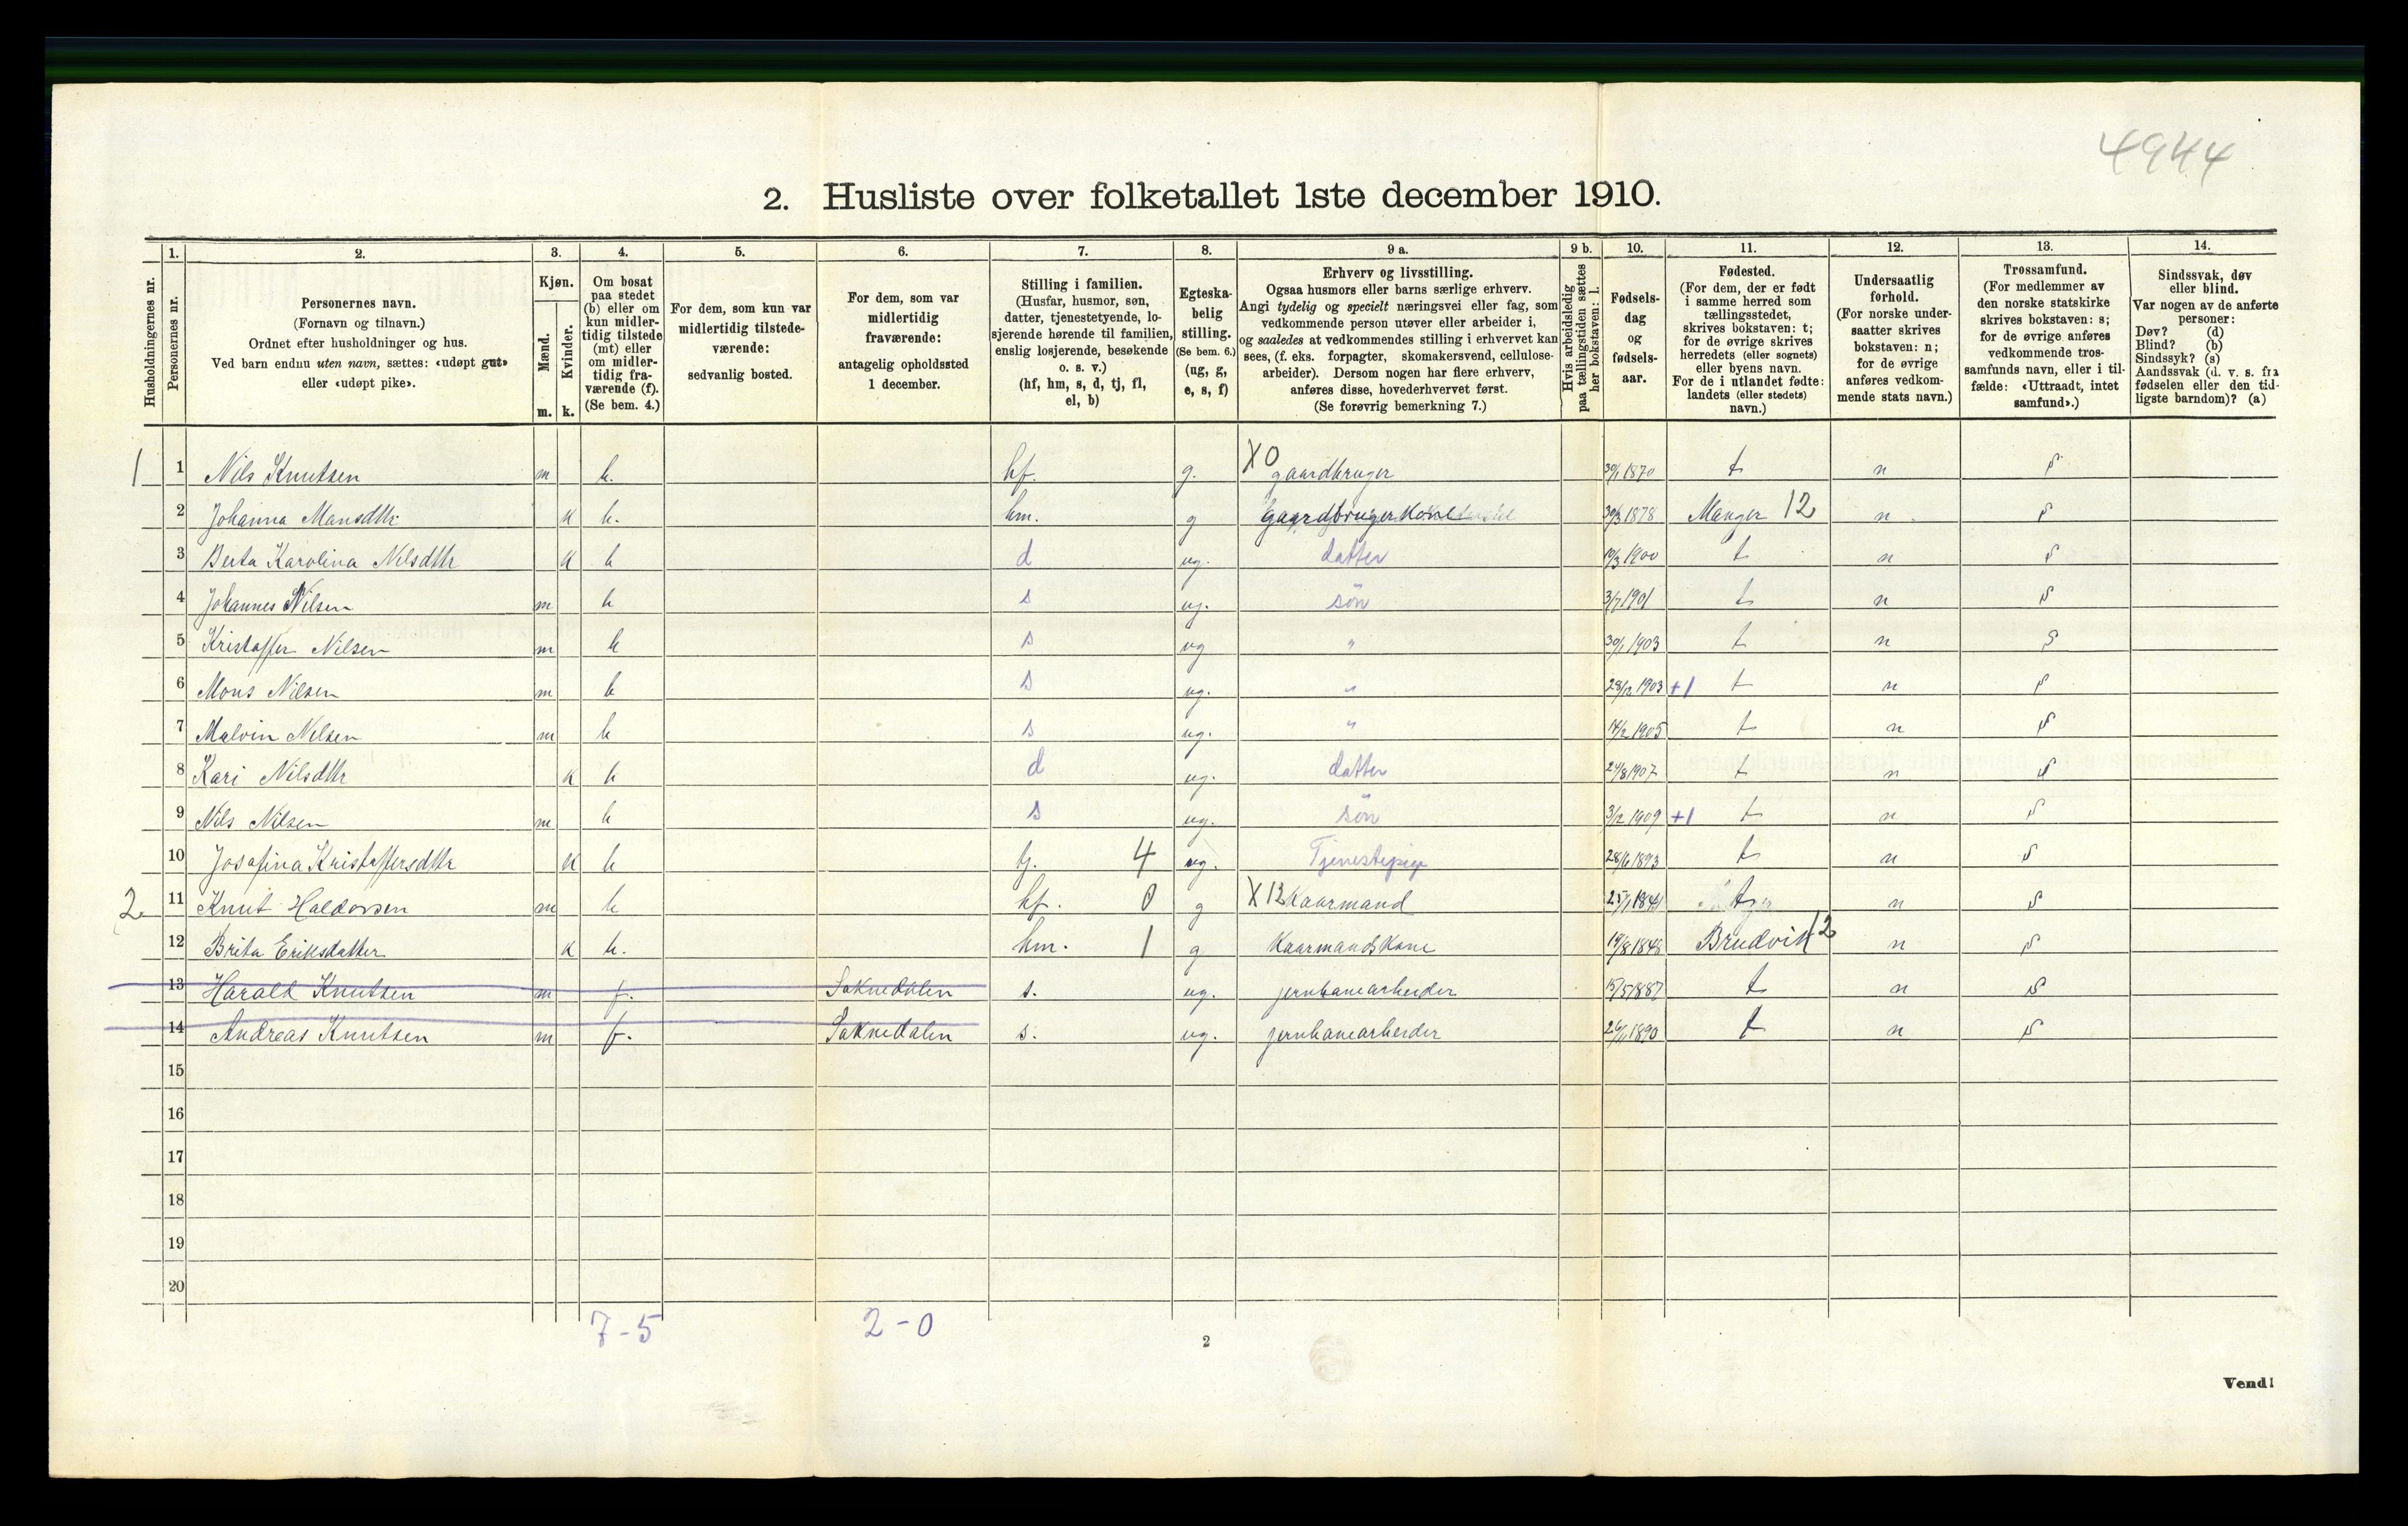 4944
2. Husliste over folketallet 1ste december 1910.
Husholdningernes nr.
1. Personernes nr.
2. Personernes navn.
(Fornavn og tilnavn.)
Ordnet efter husholdninger og hus.
Ved barn endnu uten navn, sættes: «udøpt gut»
eller «udøpt pike».
3. Kjøn.
Mænd. m.
Kvinder. k.
4. Om bosat
paa stedet
(b) eller om
kun midler-
tidig tilstede
(mt) eller
om midler-
tidig fra-
værende (f).
(Se bem. 4.)
5. For dem, som kun var
midlertidig tilstede-
værende:
sedvanlig bosted.
6. For dem, som var
midlertidig
fraværende:
antagelig opholdssted
1 december.
7. Stilling i familien.
(Husfar, husmor, søn,
datter, tjenestetyende, lo-
sjerende hørende til familien,
enslig losjerende, besøkende
o. s. v.)
(hf, hm, s, d, tj, fl,
el, b)
8. Egteska-
belig
stilling.
(Se bem. 6.)
(ug, g,
e, s, f)
9 a. Erhverv og livsstilling.
Ogsaa husmors eller barns særlige erhverv.
Angi tydelig og specielt næringsvei eller fag, som
vedkommende person utøver eller arbeider i,
og saaledes at vedkommendes stilling i erhvervet kan
sees, (f. eks. forpagter, skomakersvend, cellulose-
arbeider). Dersom nogen har flere erhverv,
anføres disse, hovederhvervet først.
(Se forøvrig bemerkning 7.)
9 b. Hvis arbeidsledig
paa tællingstiden sættes
her bokstaven: l.
10. Fødsels-
dag
og
fødsels-
aar.
11. Fødested.
(For dem, der er født
i samme herred som
tællingsstedet,
skrives bokstaven: t;
for de øvrige skrives
herredets (eller sognets)
eller byens navn.
For de i utlandet fødte:
landets (eller stedets)
navn.)
12. Undersaatlig
forhold.
(For norske under-
saatter skrives
bokstaven: n;
for de øvrige
anføres vedkom-
mende stats navn.)
13. Trossamfund.
(For medlemmer av
den norske statskirke
skrives bokstaven: s;
for de øvrige anføres
vedkommende tros-
samfunds navn, eller i til-
fælde: «Uttraadt, intet
samfund».)
14. Sindssvak, døv
eller blind.
Var nogen av de anførte
personer:
Døv? (d)
Blind? (b)
Sindssyk? (s)
Aandssvak (d. v. s. fra
fødselen eller den tid-
ligste barndom)? (a)
1 1 Nils Knutsen m b. hf. g. X0 gaardbruger 30/1 1870 t n s
2 Johanna Mansdtr k b. hm. g Gaardbruger Kone 30/3 1878 Manger 12 n s
3 Berta Karolina Nilsdtr k b d ug. datter 19/3 1900 t n s
4 Johannes Nilsen m b s ug. søn 3/7 1901 t n s
5 Kristoffer Nilsen m b s ug " 30/1 1903 t n s
6 Mons Nilsen m b s ug. " 28/12 1903 +1 t n s
7 Malvin Nilsen m b s ug. " 14/2 1905 t n s
8 Kari Nilsdtr k b d ug. datter 24/8 1907 t n s
9 Nils Nilsen m b s ug. søn 3/12 1909 +1 t n s
10 Josefina Kristoffersdtr k b tj. 4 ug. Tjenestepige 28/6 1893 t n s
2. 11 Knut Haldorsen m b hf. 0 g X12 Kaarmand 25/1 1841 t n s
12 Brita Eriksdatter k b. hm. 1 g Kaarmands Kone 19/8 1848 Brudvik 12 n s
13 Harald Knutsen m f. Soknedalen s. ug. jernbanearbeider 15/5 1887 t n s
14 Andreas Knutsen m f. Soknedalen s. ug. jernbanearbeider 26/1 1890 t n s
15
16
17
18
19
20
7-5 2-0
2
Vend!